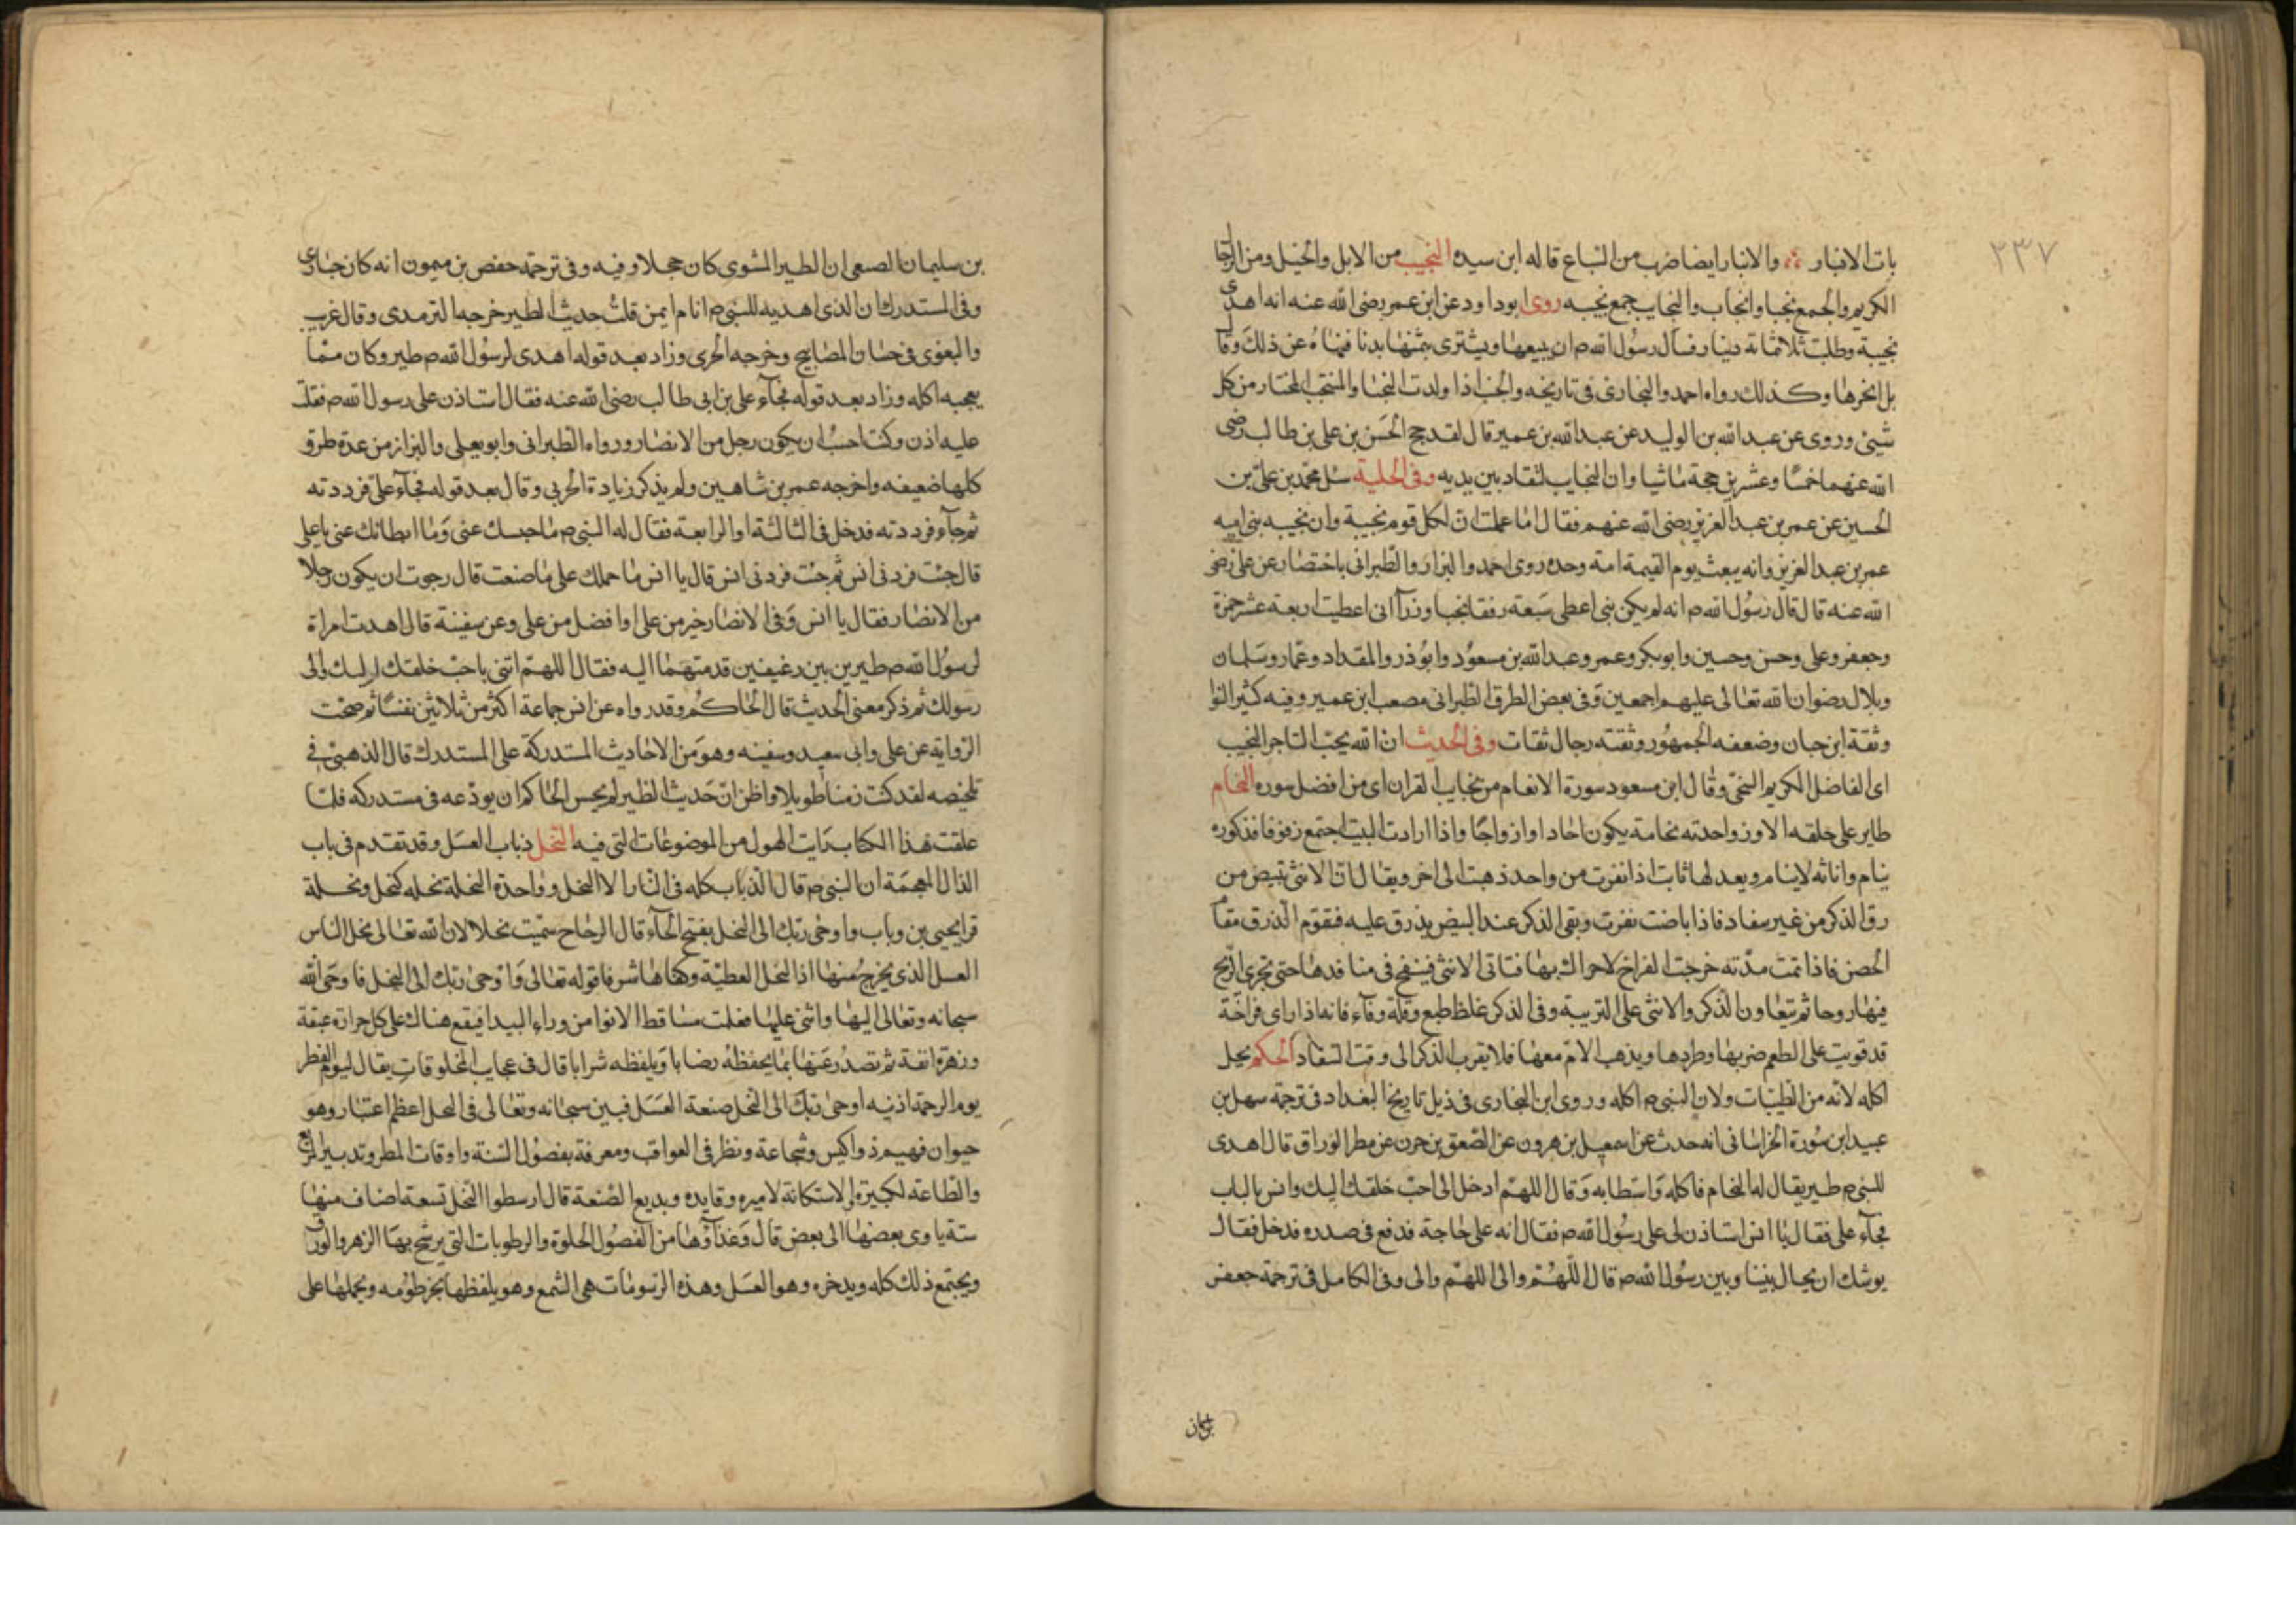 ٣٣٧
بات الانبار والانبار ايضا ضرب من السباع قاله ابن سيده النجيب من الابل والخيل ومن الرجا
الكريم والجمع نجبا وانجاب والنجايب جمع نجيبه روى ابو داود عن ابن عمر رضى الله عنه انه اهدى
نجيبة وطلبت ثلاثمائة دينار فسال رسول الله م ان يبيعها ويشترى بثمنها بدنا فنهاه عن ذلك وقال
بل انحرها وكذلك رواه احمد والبخارى فى تاريخه والنجب اذا ولدت النجبا والمنتجب المختار من كل
شيئ وروى عن عبد الله بن الوليد عن عبد الله بن عمير قال لقد حج الحسن بن على بن طالب رضى
الله عنهما خمسا وعشرين حجة ماشيا وان النجايب لتقاد بين يديه وفى الحلية سئل محمد بن على بن
الحسين عن عمر بن عبد العزيز رضى الله عنهم فقال اما علمت ان لكل قوم نجيبة وان نجيبه بنى اميه
عمر بن عبد العزيز وانه يبعث يوم القيمة امة وحده روى احمد والبزار والطبرانى باختصار عن على رضى
الله عنه قال قال رسول الله م انه لم يكن نبى اعطى سبعة رفقا نجبا وزرآ انى اعطيت اربعة عشر حمزة
وجعفر وعلى وحسن وحسين وابو بكر وعمر وعبد الله بن مسعود وابو ذر والمقداد وعمار وسلمان
وبلال رضوان الله تعالى عليهم اجمعين وفى بعض الطرق الطبرانى مصعب ابن عمير وفيه كثير النوا
وثقة ابن حبان وضعفه الجمهور وثقته رجال ثقات وفى الحديث ان الله يحب التاجر النجيب
اى الفاضل الكريم السخى وقال ابن مسعود سورة الانعام من نجايب القران اى من افضل سوره النحام
طاير على خلقه الاوز واحدته نحامة يكون احادا وازواجا واذا ارادت المبيت اجتمع زفوفا فذكوره
ينام واناثه لاينام ويعد لها ثابت اذا نفرت من واحد ذهبت الى اخر ويقال ان الانثى تبيض من
رق الذكر من غير سفاد فاذا باضت نفرت وبقى الذكر عند البيض يذرق عليه فقوم الذرق مقام
الحضن فاذا تمت مدته خرجت الفراخ لاحراك بها فتاتى الانثى فينفخ فى منا فدها حتى تجرى الريح
فيها روحا ثم تيعاون الذكر والانثى على التربية وفى الذكر غلظ طبع وقلة وفاء فانه اذا راى فراخه
قد قويت على الطعم ضربها وطردها ويذهب الام معها فلا يقرب الذكر الى وقت السفاد الحكم يحل
اكله لانه من الطيبات ولان النبى م اكله وروى ابن النجارى فى ذيل تاريخ البغداد فى ترجمة سهل بن
عبيد ابن سورة الخراسانى انه حدث عن اسمعيل بن هرون عن الصعق بن حزن عن مطر الوراق قال اهدى
للنبى م طير يقال له النحام فاكله واستطابه وقال اللهم ادخل الى احب خلقك اليك وانس بالباب
فجآء على فقال يا انس استاذن لى على رسول الله م فقال انه على حاجة فدفع فى صدره فدخل فقال
يوشك ان يحال بيننا وبين رسول الله م قال اللهم والى اللهم والى وفى الكامل فى ترجمة جعفر
بن سليمان الصبعى ان الطير المشوى كان حجلا وفيه وفى ترجمة حفص بن ميمون انه كان حبارى
وفى المستدرك ان الذى اهديه للنبى م انا م ايمن قلت حديث الطير خرجه الترمدى وقال غريب
والبغوى فى حسان المصابيح وخرجه الحربى وزاد بعد قوله اهدى لرسول الله م طير وكان مما
يعجبه اكله وزاد بعد قوله فجآء على بن ابى طالب رضى الله عنه فقال استاذن على رسول الله م فقلت
عليه اذن وكنت احب ان يكون رجل من الانصار ورواه الطبرانى وابو يعلى والبزاز من عدة طرق
كلها ضعيفه واخرجه عمر بن شاهين ولم يذكر زيادة الحربى وقال بعد قوله فجآء على فرددته
ثم جآء فرددته فدخل فى الثالثة او الرابعة فقال له النبى م ما حبسك عنى وما ابطائك عنى يا على
قال جئت فردنى انس ثم جئت فردنى انس قال يا انس ما حملك على ما صنعت قال رجوت ان يكون رجلا
من الانصار فقال يا انس وفى الانصار خير من على او افضل من على وعن سفينة قال اهدت امراة
لرسول الله م طيرين بين رغيفين قدمتهما اليه فقال اللهم اتنى باحب خلقك اليك والى
رسولك ثم ذكر معنى الحديث قال الحاكم وقد رواه عن انس جماعة اكثر من ثلاثين نفسا ثم صحت
الرواية عن على وابى سعيد وسفينه وهو من الاحاديث المستدركة على المستدرك قال الذهبى فى
تلخيصه لقد كنت زمنا طويلا واظن ان حديث الطير لم يحسن الحاكم ان يودعه فى مستدركه فلما
علقت هذا الكتاب رايت الهول من الموضوعات التى فيه النحل ذباب العسل وقد تقدم فى باب
الذال المعجمة ان النبى م قال الذباب كله فى النار الا النحل وواحدة النحلة نحله كنحل ونحلة
قرا يحيى بن وثاب واوحى ربك الى النحل بفتح الحآء قال الزجاج سميت نحلا لان الله تعالى نحل الناس
العسل الذى يخرج منها اذ النحل العطية وكفاها شرفا قوله تعالى واوحى ربك الى النحل فاوحى الله
سبحانه وتعالى اليها واثنى عليها فعلمت مساقط الانوا من وراء البيدا فيقع هناك على كل حرارة عبقة
وزهرة انفة ثم تصدر عنها بما يحفظه رضابا ويلفظه شرابا قال فى عجايب المخلوقات يقال ليوم الفطر
يوم الرحمة اذ فيه اوحى ربك الى النحل صنعة العسل فبين سبحانه وتعالى فى النحل اعظم اعتبار وهو
حيوان فهيم ذو اكيس وشجاعة ونظر فى العواقب ومعرفة بفصول السنة واوقات المطر وتدبير المرتع
والطاعة لكبيره والاستكانة لاميره وقايده وبديع الصنعة قال ارسطوا النحل تسعة اصناف منها
ستة ياوى بعضها الى بعض قال وغذآؤها من الفصول الحلوة والرطوبات التى يرشح بها الزهر والورق
ويجتمع ذلك كله ويدخره وهو العسل وهذه الرسومات هى الشمع وهو يلفظها بخرطومه ويحملها على